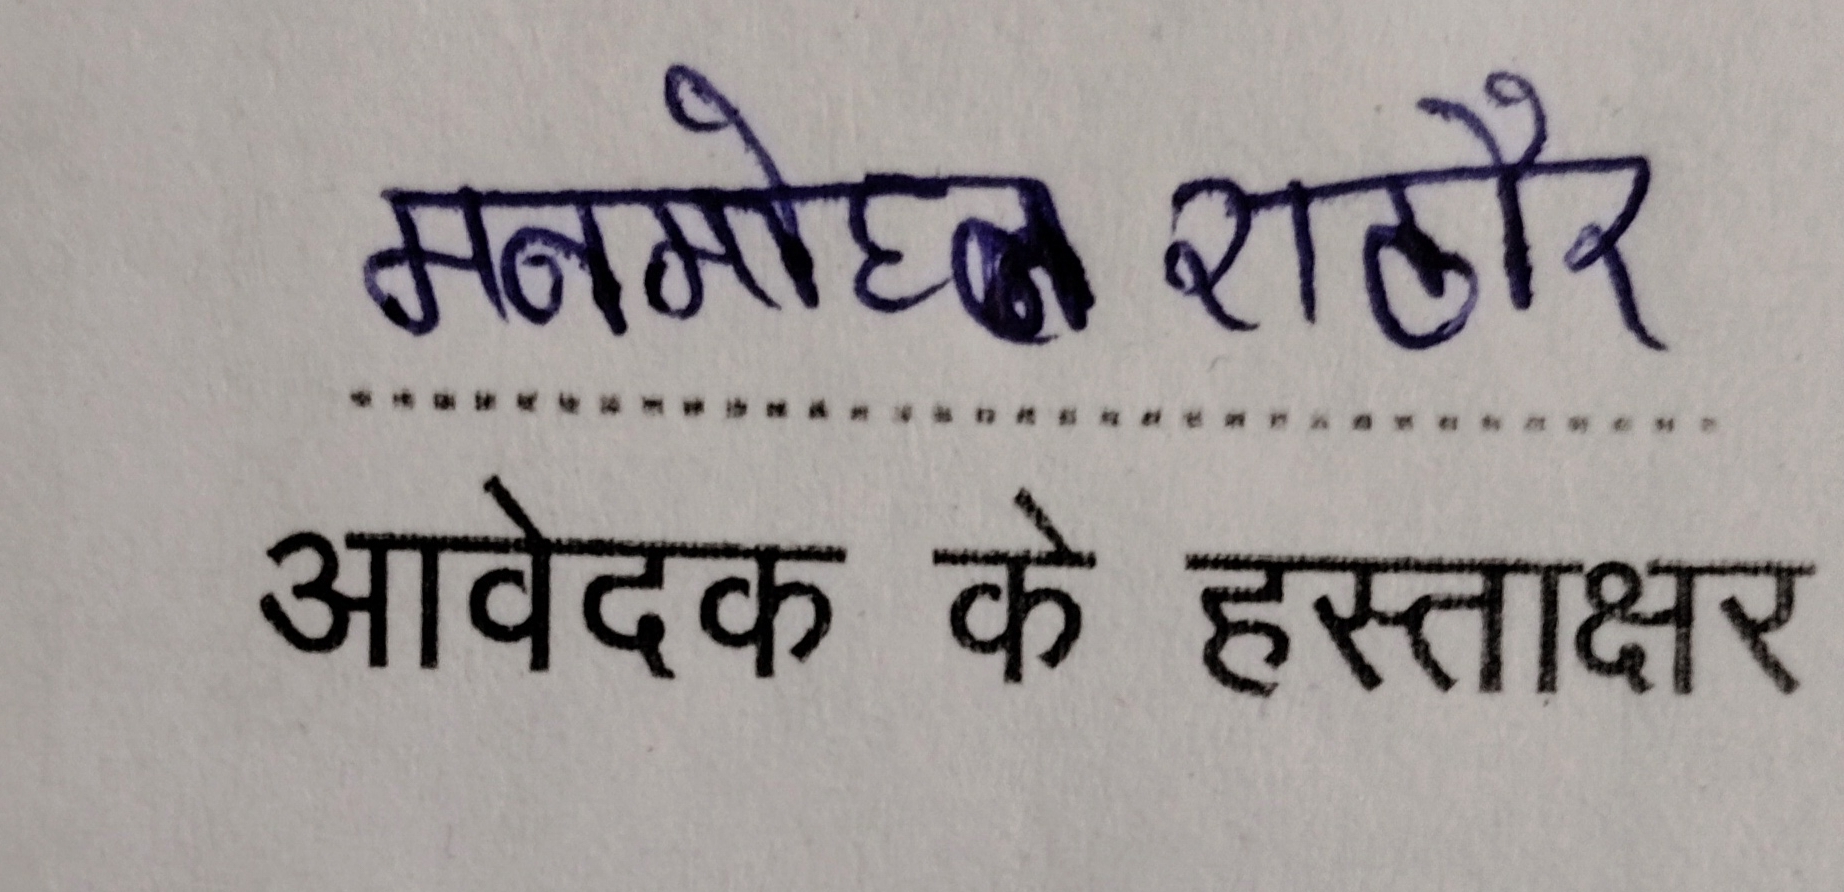 मनमोहन राठौर
आवेदक के हस्ताक्षर